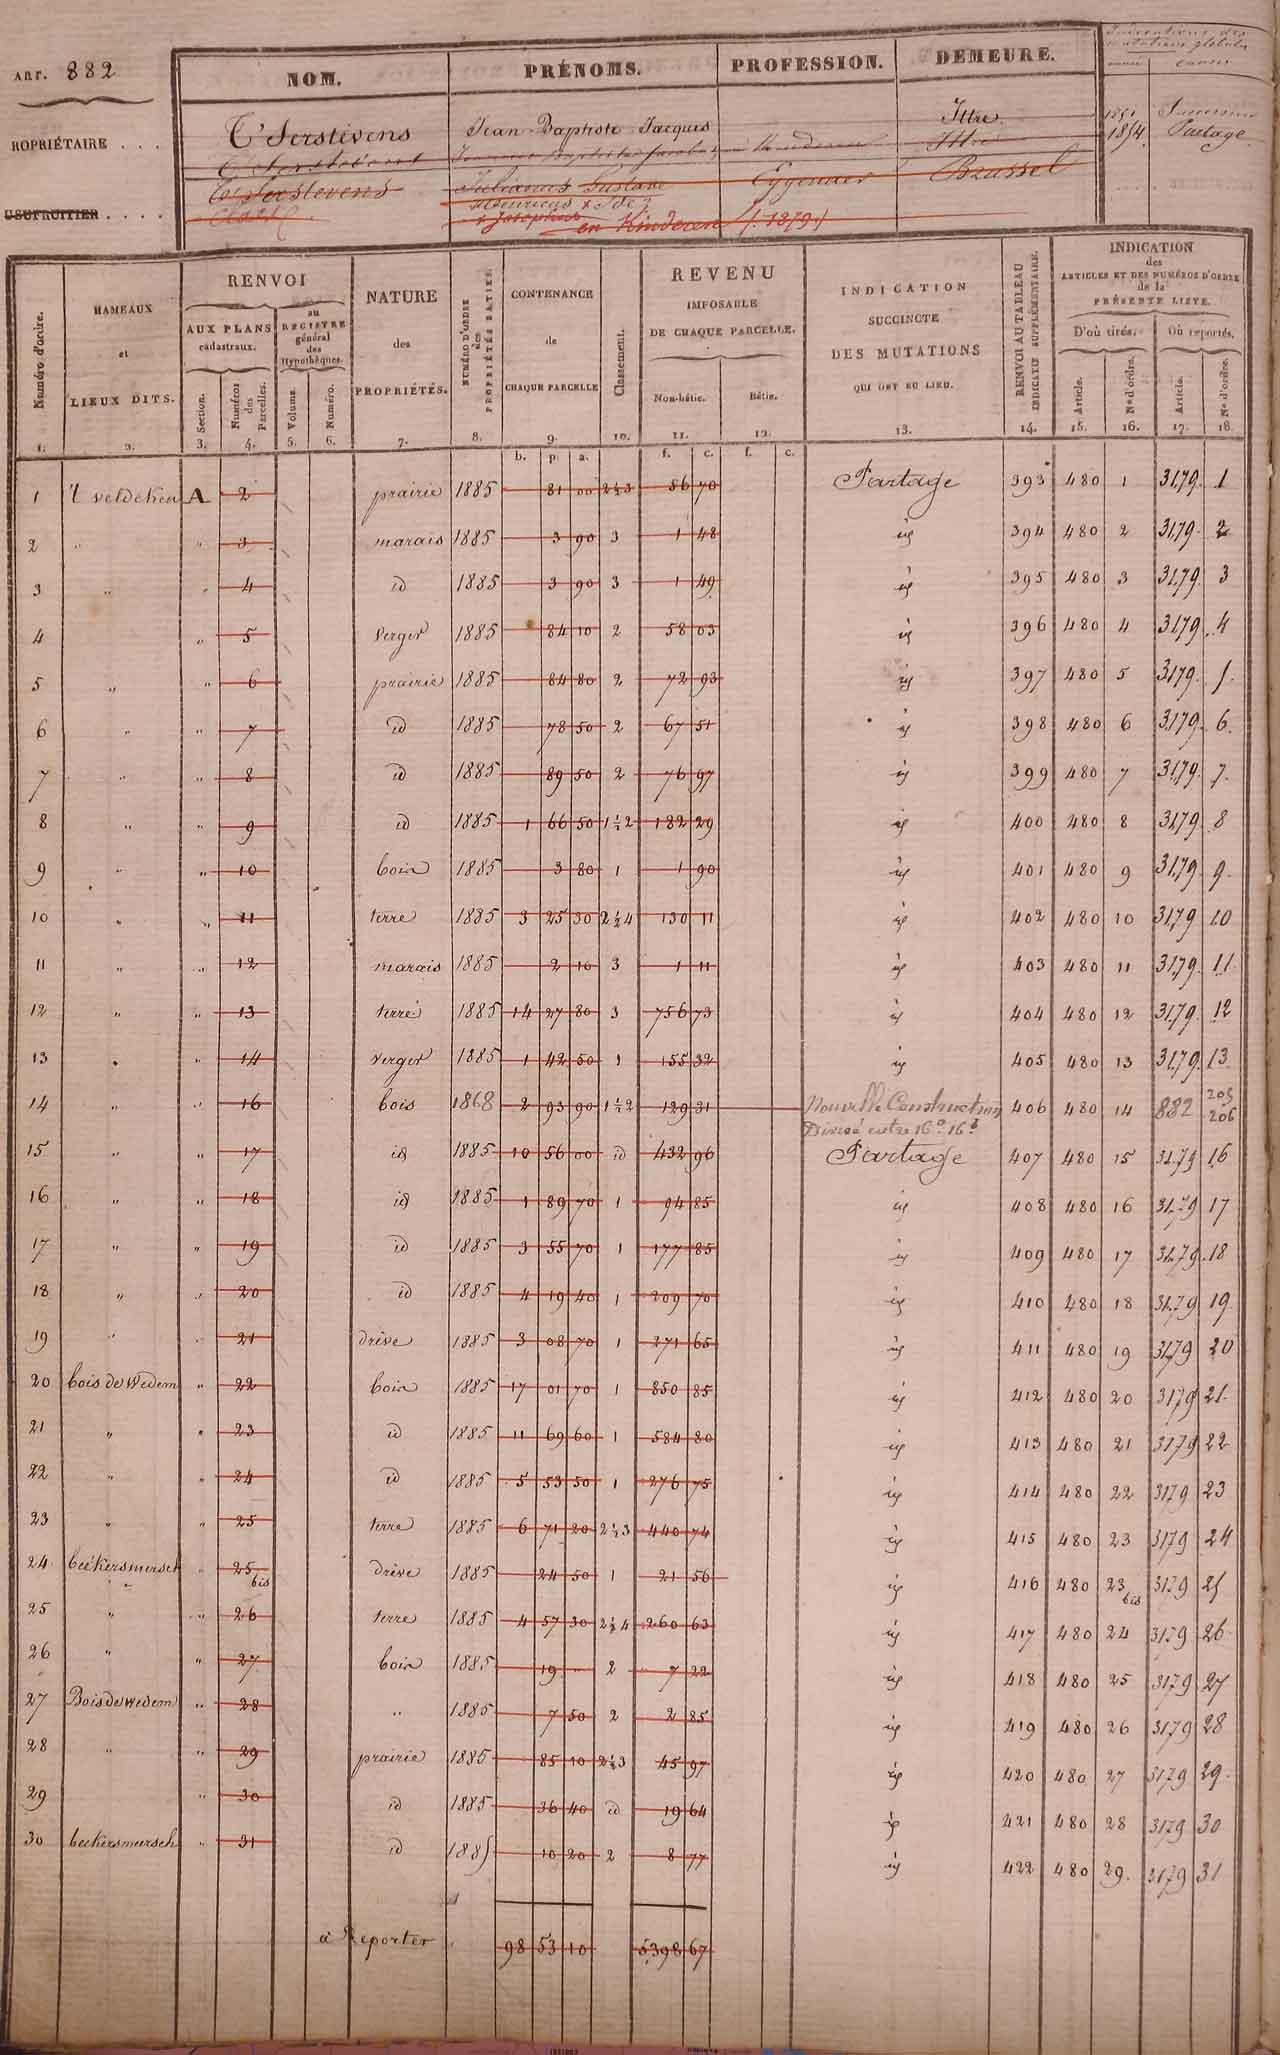 ART. 882
NOM. PRÉNOMS. PROFESSION. DEMEURE.
mutations globales
ROPRIÉTAIRE . . . T'Serstevens Jean Baptiste Jacques Ittre. 1851 Succession
Ittre 1854. Partage
T'Serstevens Gustave Eygenaer Brussel
USUFRUITIER . . . . Henricus
Josephus en Kinderen (1879)
Numéro d'ordre. HAMEAUX et LIEUX DITS. RENVOI AUX PLANS cadastraux. Section. Numéros des Parcelles. au REGISTRE général des Hypothèques. Volume. Numéro. NATURE des PROPRIÉTÉS. NUMÉRO D'ORDRE des PROPRIÉTÉS BATIES. CONTENANCE de CHAQUE PARCELLE Classement. REVENU IMPOSABLE DE CHAQUE PARCELLE. Non-bâtie. Bâtie. INDICATION SUCCINCTE DES MUTATIONS QUI ONT EU LIEU. RENVOI AU TABLEAU INDICATIF SUPPLÉMENTAIRE. INDICATION des ARTICLES ET DES NUMÉROS D'ORDRE de la PRÉSENTE LISTE. D'où tirés. Où reportés. Article. Nos d'ordre. Article. Nos d'ordre.
1. 2. 3. 4. 5. 6. 7. 8. 9. 10. 11. 12. 13. 14. 15. 16. 17. 18.
b. p. a. f. c. f. c.
1 't veldeken A 2 prairie 1885 81 00 2½3 56 70 Partage 393 480 1 3179. 1
2 " " 3 marais 1885 3 90 3 1 48 id 394 480 2 3179. 2
3 " " 4 id 1885 3 90 3 1 49 id 395 480 3 3179. 3
4 " 5 verger 1885 84 10 2 58 03 id 396 480 4 3179. 4
5 " " 6 prairie 1885 84 80 2 72 93 id 397 480 5 3179. 5.
6 " " 7 id 1885 78 50 2 67 51 id 398 480 6 3179. 6.
7 " " 8 id 1885 89 50 2 76 97 id 399 480 7 3179. 7.
8 " " 9 id 1885 1 66 50 1½2 182 29 id 400 480 8 3179. 8
9 " " 10 bois 1885 3 80 1 1 90 id 401 480 9 3179. 9.
10 " " 11 terre 1885 3 25 30 2½4 130 11 id 402 480 10 3179. 10
11 " " 12 marais 1885 2 10 3 1 11 id 403 480 11 3179. 11.
12 " " 13 terre 1885 14 27 80 3 756 73 id 404 480 12 3179. 12
13 " " 14 verger 1885 1 42 50 1 155 32 id 405 480 13 3179. 13.
14 " " 16 bois 1868 2 93 90 1½2 129 31 Nouvelle Construction 406 480 14 882 205 206
Divisé entre 16a 16b
15 " " 17 id 1885 10 56 00 id 432 96 Partage 407 480 15 3179 16
16 " " 18 id 1885 1 89 70 1 94 85 id 408 480 16 3179 17
17 " " 19 id 1885 3 55 70 1 177 85 id 409 480 17 3179. 18
18 " " 20 id 1885 4 19 40 1 209 70 id 410 480 18 3179 19.
19 " " 21 drève 1885 3 08 70 1 271 65 id 411 480 19 3179 20
20 bois de Wedem " 22 bois 1885 17 01 70 1 850 85 id 412 480 20 3179 21.
21 " " 23 id 1885 11 69 60 1 584 80 id 413 480 21 3179 22
22 " " 24 id 1885 5 53 50 1 276 75 id 414 480 22 3179 23
23 " " 25 terre 1885 6 71 20 2½3 440 74 id 415 480 23 3179 24
24 beekersmersch " 25 bis drève 1885 24 50 1 21 56 id 416 480 23 bis 3179 25
25 " " 26 terre 1885 4 57 30 2½4 260 63 id 417 480 24 3179 26
26 " " 27 bois 1885 19 " 2 7 22 id 418 480 25 3179 27
27 Bois de Wedem " 28 " 1885 7 50 2 2 85 id 419 480 26 3179 28
28 " " 29 prairie 1885 85 10 2½3 45 97 id 420 480 27 3179 29.
29 " 30 id 1885 36 40 id 19 64 id 421 480 28 3179 30
30 beekersmersch " 31 id 1885 10 20 2 8 77 id 422 480 29. 3179 31
à Reporter 98 53 10 5398 67